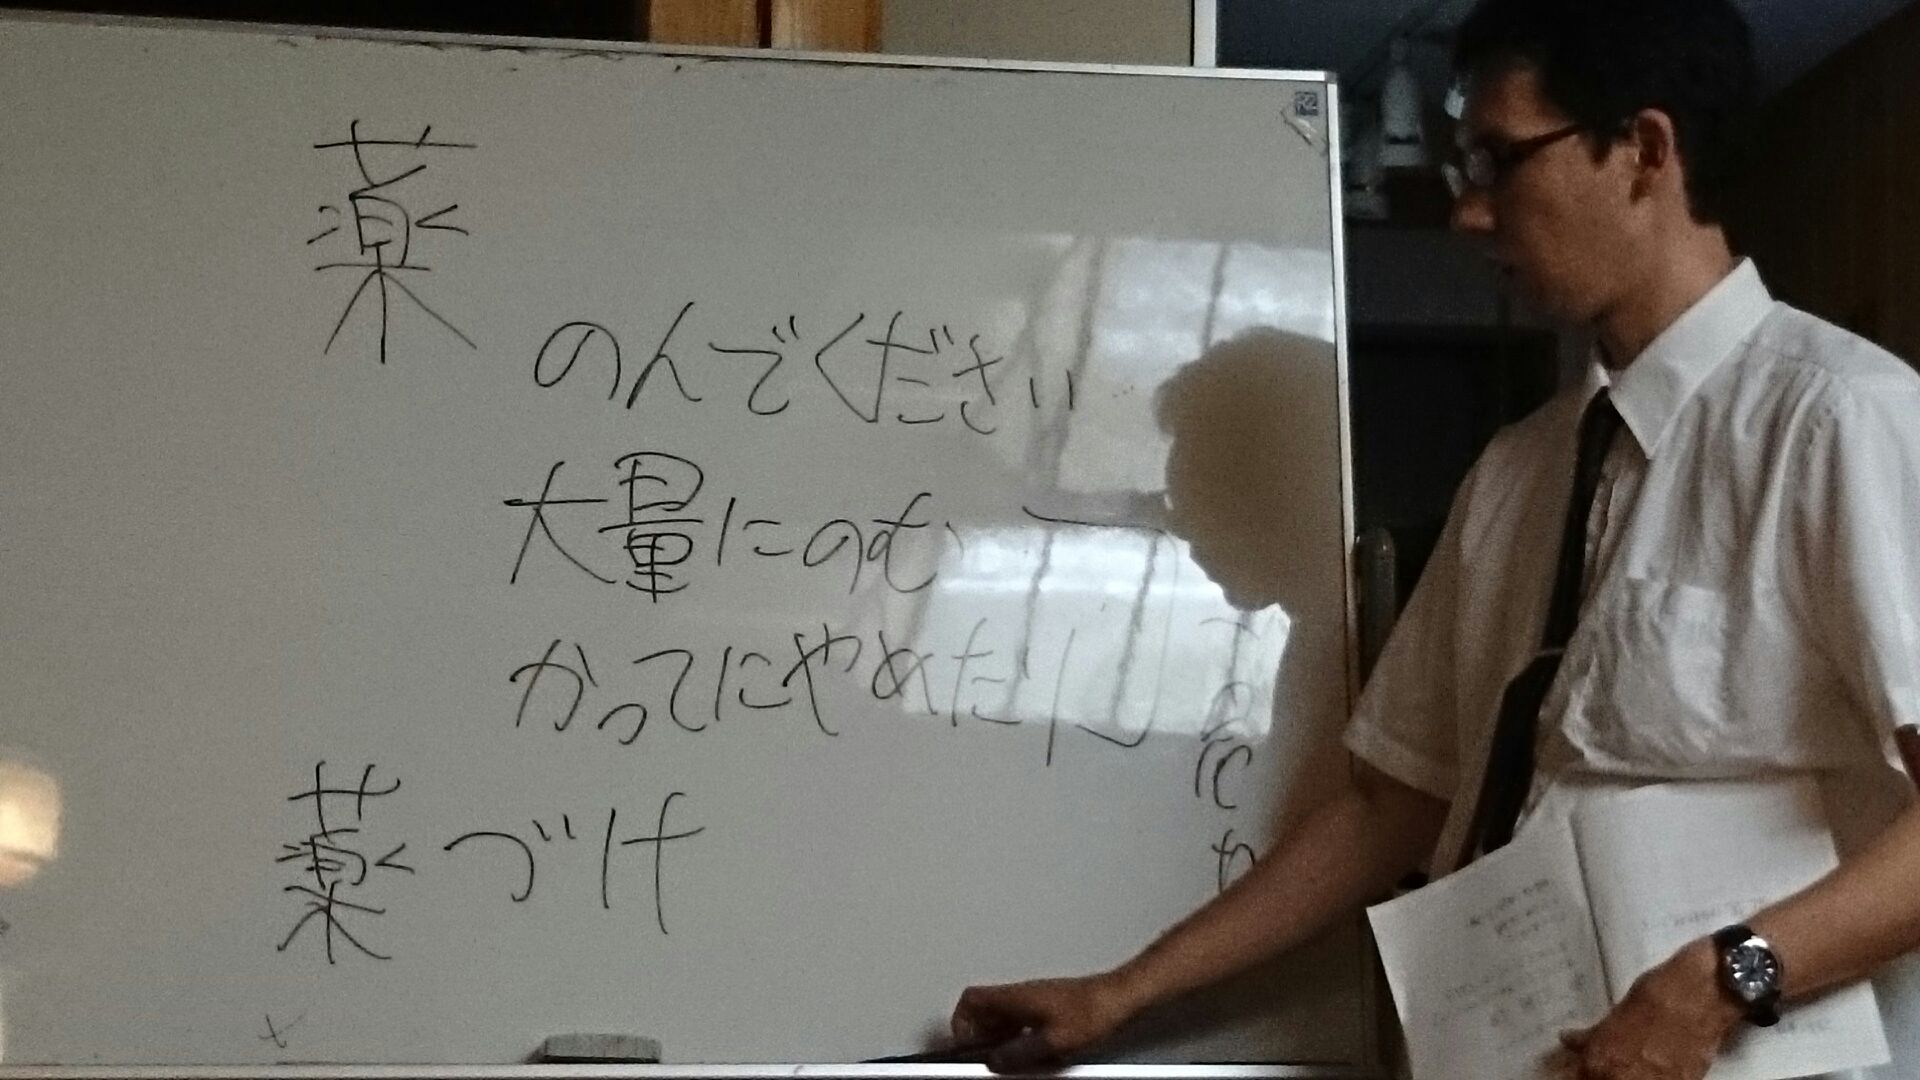 薬
のんでください
大量にのむ
かってにやめたり
薬づけ